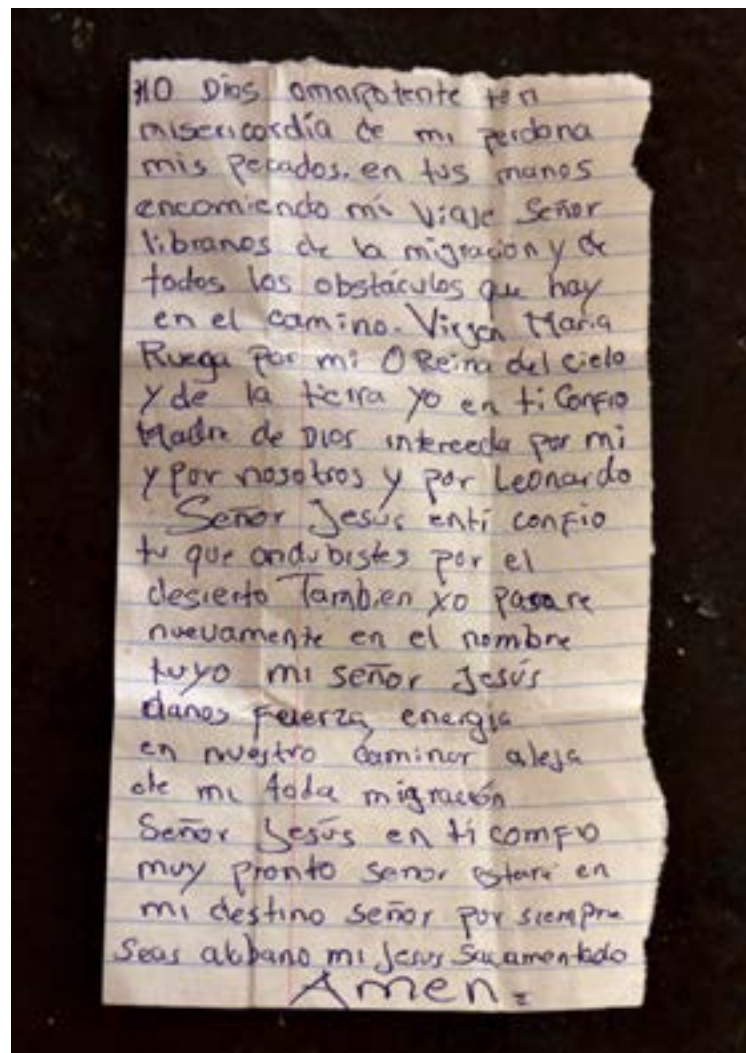 HO Dios omnipotente ten
misericordia de mi perdona
mis pecados. en tus manos
encomiendo mi viaje Señor
libranos de la migración y de
todos los obstáculos que hay
en el camino. Virgen Maria
Ruega por mi O Reina del cielo
y de la tierra yo en ti Confio
Madre de Dios interceda por mi
y por nosotros y por Leonardo
Señor Jesús enti confio
tu que andubistes por el
desierto Tambien yo pasare
nuevamente en el nombre
tuyo mi señor Jesús
danos fuerza energia
en nuestro caminar aleja
de mi toda migración
Señor Jesús en ti comfio
muy pronto señor estaré en
mi destino señor por siempre
Seas alabano mi Jesus Sacamentado
Amen.